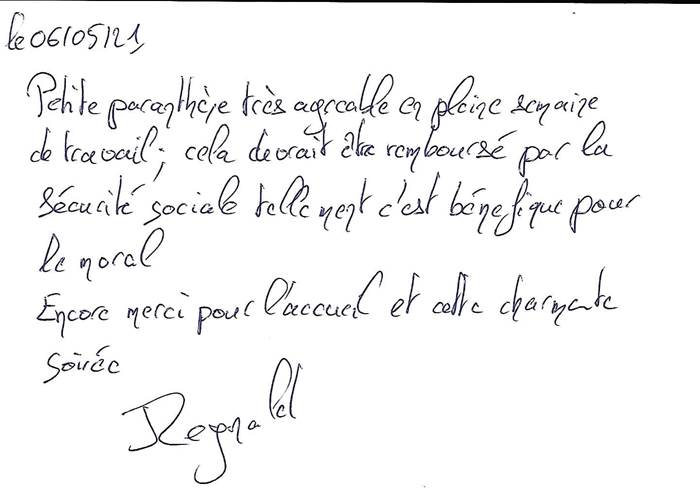 le 06/05/21,
Petite paranthèse très agréable en pleine semaine
de travail ; cela devrait être remboursé par la
Sécurité sociale tellement c'est bénéfique pour
le moral
Encore merci pour l'accueil et cette charmante
soirée
Regnald